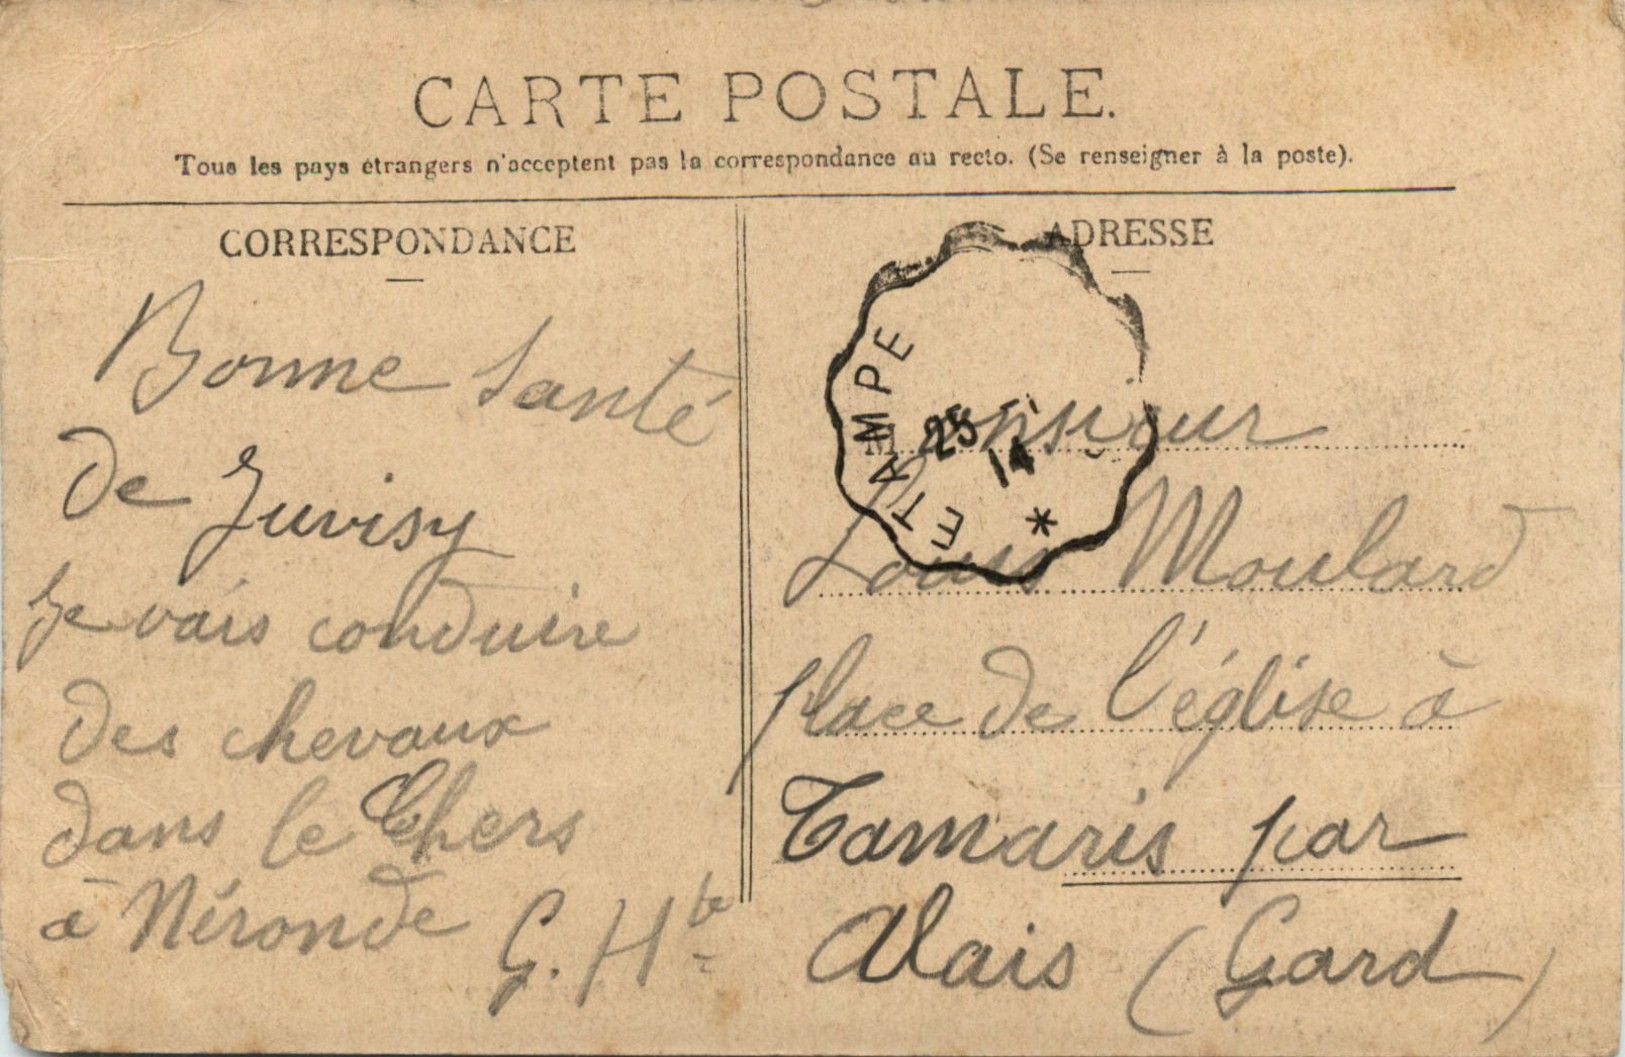 CARTE POSTALE.
Tous les pays étrangers n'acceptent pas la correspondance au recto. (Se renseigner à la poste).
CORRESPONDANCE
Bonne Santé
de Juvisy
Je vais conduire
des chevaux
dans le Chers
à Néronde
G. Hte
ADRESSE
ETAMPE
25
14
*
Monsieur
Louis Moulard
place de l'église à
Tamaris par
Alais (Gard)